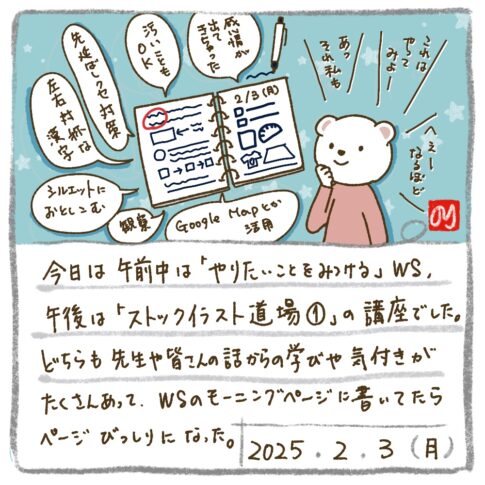 これは
やって
みよー
あっ
それ私も
へぇー
なるほど
感情が
出て
汚くても
OK
先延ばしクセ対策
左右対称な
漢字
シルエットに
おとしこむ
観察
Google Mapとか
活用
2/3(月)
今日は午前中は「やりたいことをみつける」WS,
午後は「ストックイラスト道場①」の講座でした。
どちらも先生や皆さんの話からの学びや気付きが
たくさんあって、WSのモーニングページに書いてたら
ページびっしりになった。
2025.2.3(月)